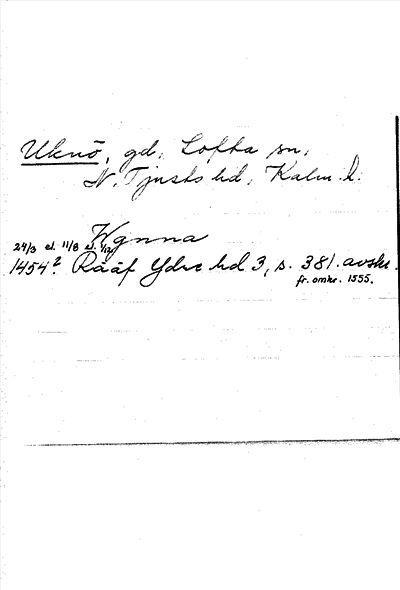 Uknö, gd, Lofta sn,
N. Tjusts hd, Kalm. l.
Wgnna
24/3 el. 11/8 el. 1/12
1454? Rääf Ydre hd 3, s. 381. avskr.
fr. omkr. 1555.